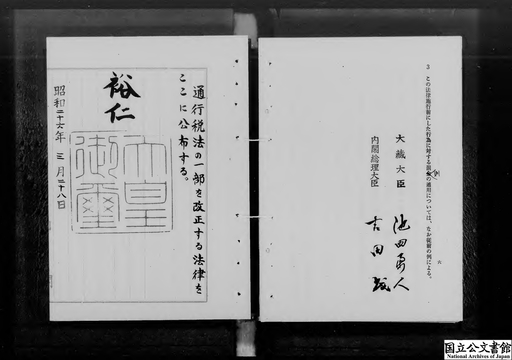 3 この法律施行前にした行為に対する罰則の適用については、なお従前の例による。
六
大蔵大臣 池田勇人
内閣総理大臣 吉田茂
通行税法の一部を改正する法律を
ここに公布する。
裕仁
天皇
御璽
昭和二十六年三月二十八日
国立公文書館
National Archives of Japan